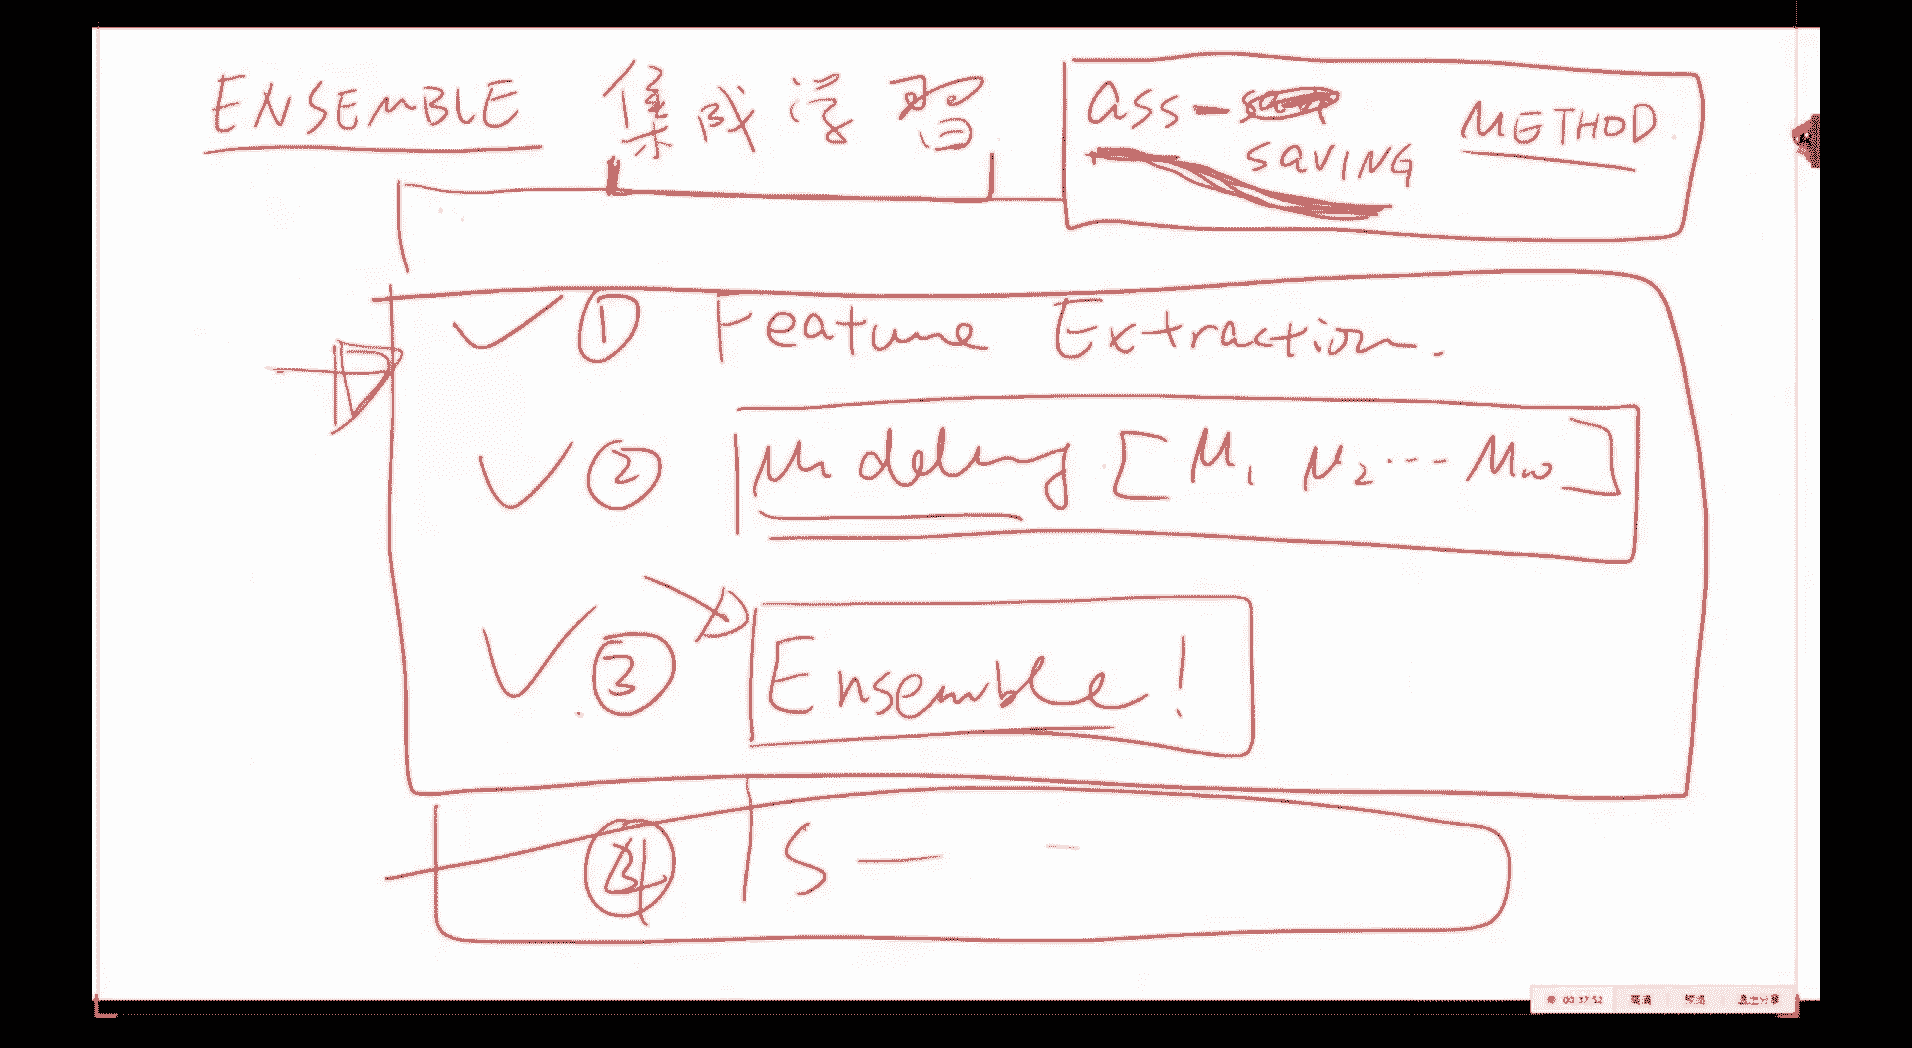 ENSEMBLE 集成学習
ass-
SAVING METHOD
① Feature Extraction.
② Modeling [M₁ M₂ ... M₁₀]
③ Ensemble!
④ S —
00:37:52